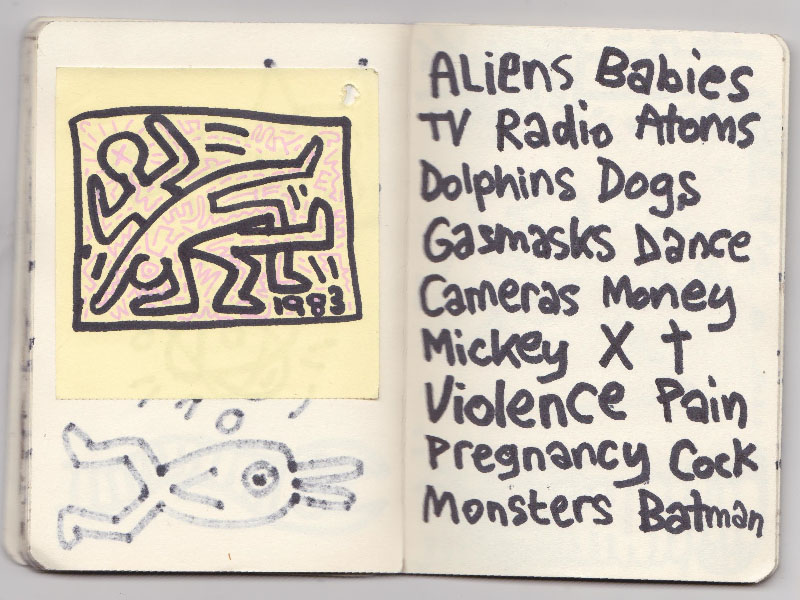 1983
Aliens Babies
TV Radio Atoms
Dolphins Dogs
Gasmasks Dance
Cameras Money
Mickey X †
Violence Pain
Pregnancy Cock
Monsters Batman